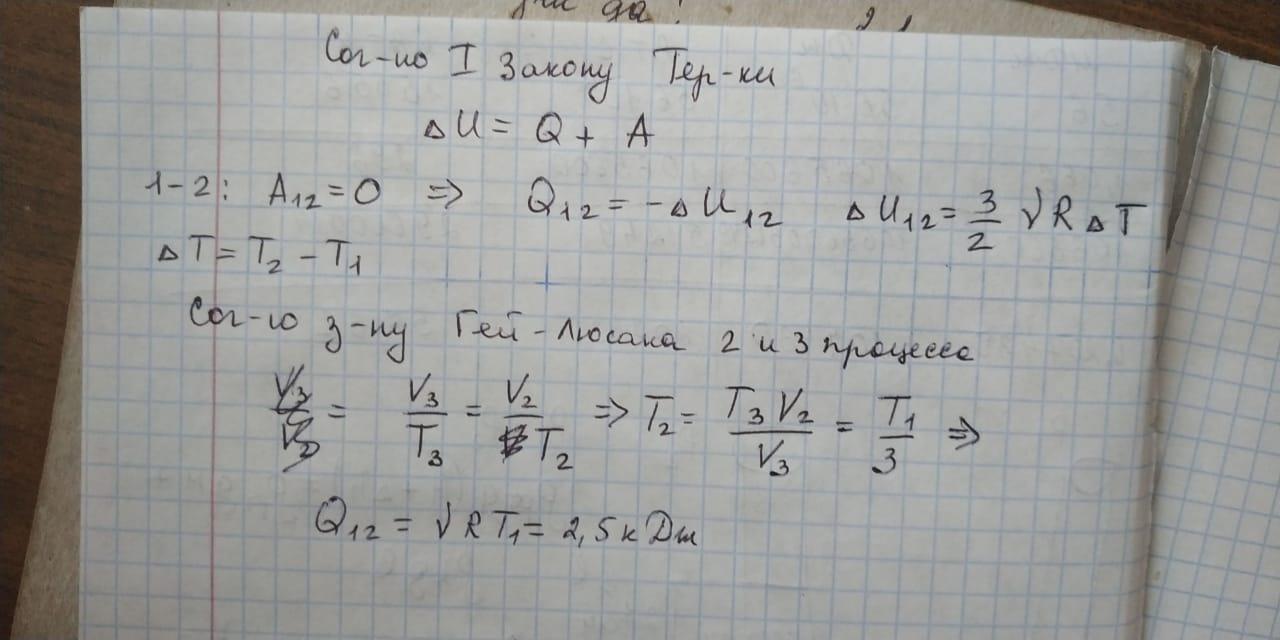 Сог-но I Закону Тер-ки
ΔU = Q + A
1-2: A₁₂ = 0 => Q₁₂ = -ΔU₁₂ ΔU₁₂ = 3/2 νRΔT
ΔT = T₂ - T₁
Сог-ю з-ну Гей-Люсака 2 и 3 процесса
V₃/T₃ = V₂/T₂ => T₂ = T₃V₂/V₃ = T₁/3 =>
Q₁₂ = νRT₁ = 2,5 кДж